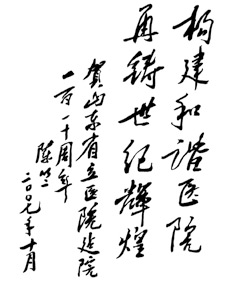 构建和谐医院
再铸世纪辉煌
贺山东省立医院建院
一百一十周年
陈竺
二〇〇七年十月